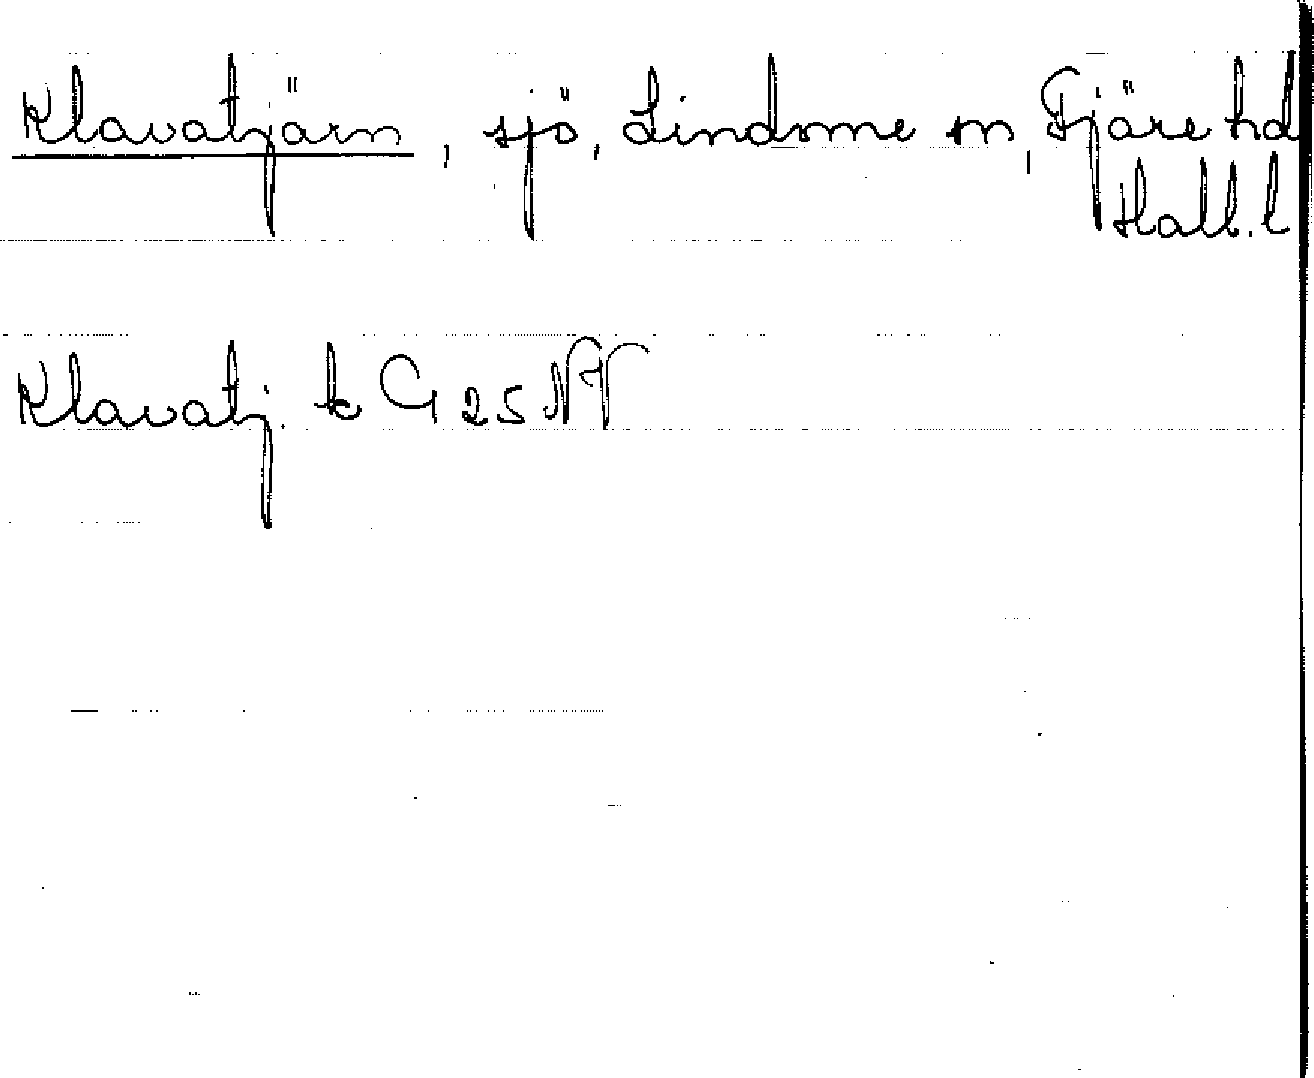 Klavatjärn, sjö, Lindome sn, Fjäre hd
Hall. l
Klavatj. k G 25 NV